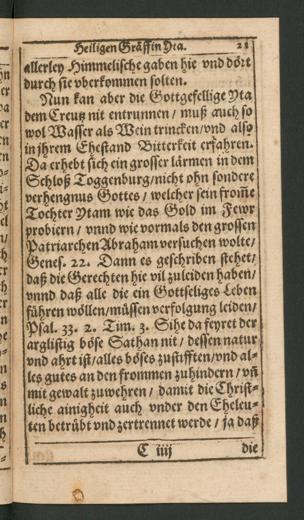 Heiligen Gräffin Yta. 21
allerley Himmelische gaben hie vnd dört
durch sie vberkommen solten.
Nun kan aber die Gottgefellige Yta
dem Creutz nit entrunnen / muß auch so
wol Wasser als Wein trincken/vnd also
in jhrem Ehestand Bitterkeit erfahren.
Da erhebt sich ein grosser lärmen in dem
Schloß Toggenburg/nicht ohn sondere
verhengnus Gottes / welcher sein from̃e
Tochter Ytam wie das Gold im Fewr
probiern / vnnd wie vormals den grossen
Patriarchen Abraham versuchen wolte/
Genes. 22. Dann es geschriben stehet/
daß die Gerechten hie vil zuleiden haben/
vnnd daß alle die ein Gottseliges Leben
führen wöllen/müssen verfolgung leiden/
Psal. 33. 2. Tim. 3. Sihe da feyret der
arglistig böse Sathan nit / dessen natur
vnd ahrt ist/alles böses zustifften/vnd al-
les gutes an den frommen zuhindern / vñ
mit gewalt zuwehren / damit die Christ-
liche ainigheit auch vnder den Eheleu-
ten betrübt vnd zertrennet werde / ja daß
C iiij die